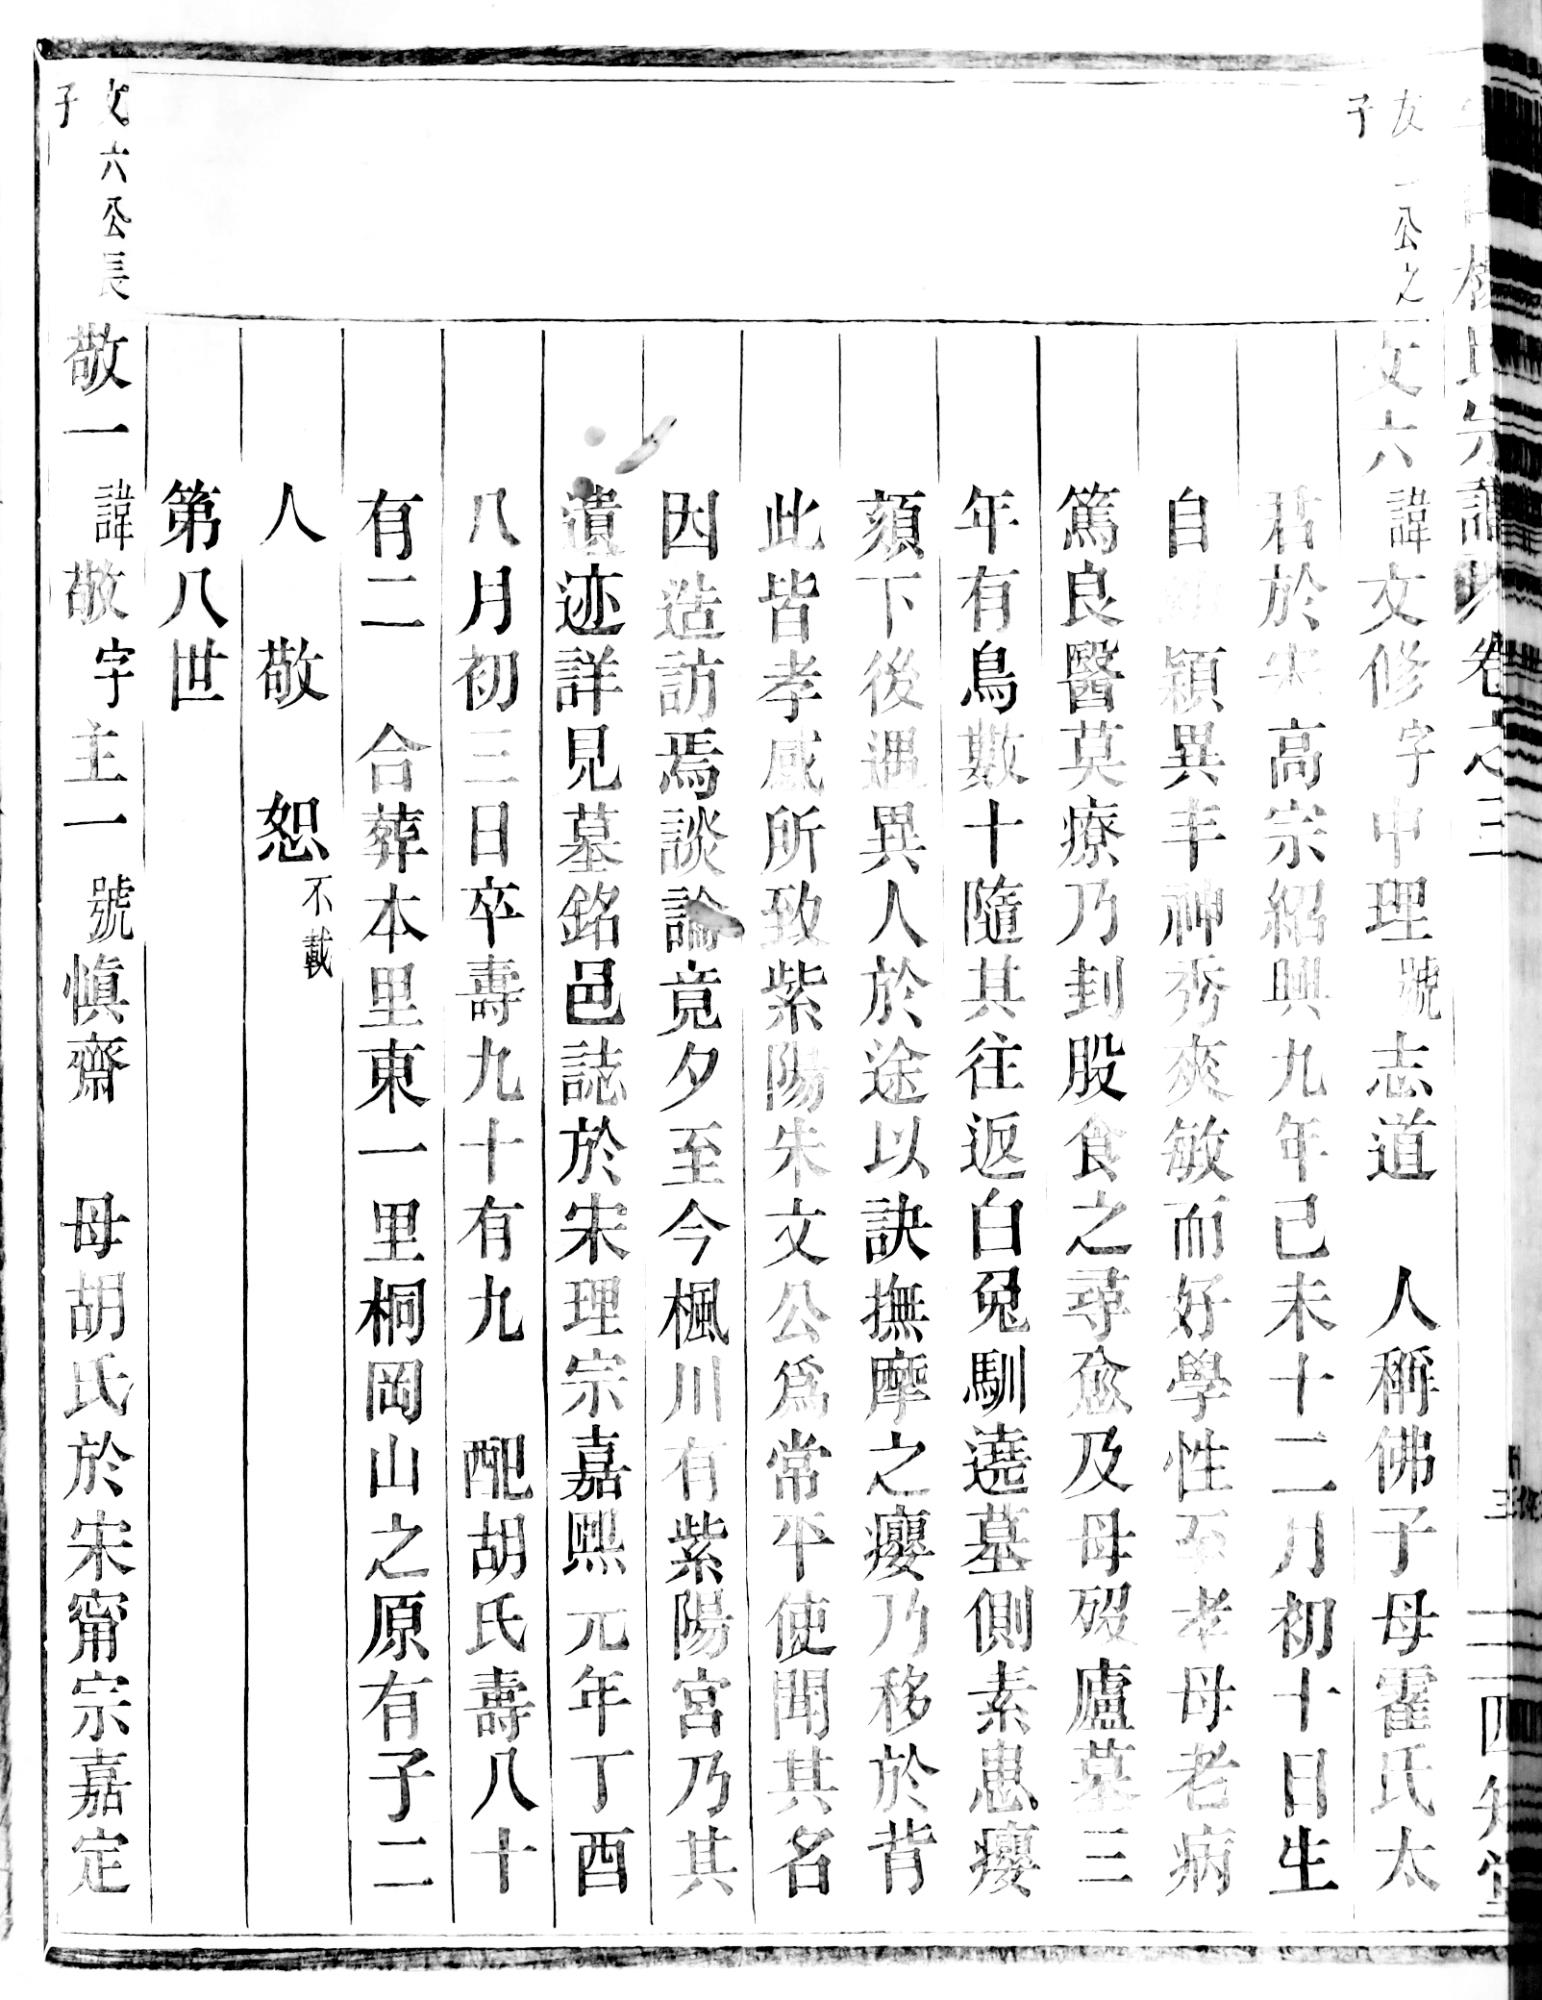 楊氏宗譜 卷之三
四知堂
友一公之
子
文六 諱文修 字中理 號志道 人稱佛子母霍氏太
君於宋高宗紹興九年己未十二月初十日生
自幼穎異丰神秀爽敏而好學性至孝母老病
篤良醫莫療乃刲股食之尋愈及母歿廬墓三
年有鳥數十隨其往返白兔馴遶墓側素患癭
頦下後遇異人於途以訣撫摩之癭乃移於背
此皆孝感所致紫陽朱文公爲常平使聞其名
因造訪焉談論竟夕至今楓川有紫陽宮乃其
遺迹詳見墓銘邑誌於宋理宗嘉熙元年丁酉
八月初三日卒壽九十有九 配胡氏壽八十
有二 合葬本里東一里桐岡山之原有子二
人 敬 恕 不載
第八世
文六公長
子
敬一 諱敬 字主一 號愼齋 母胡氏於宋甯宗嘉定